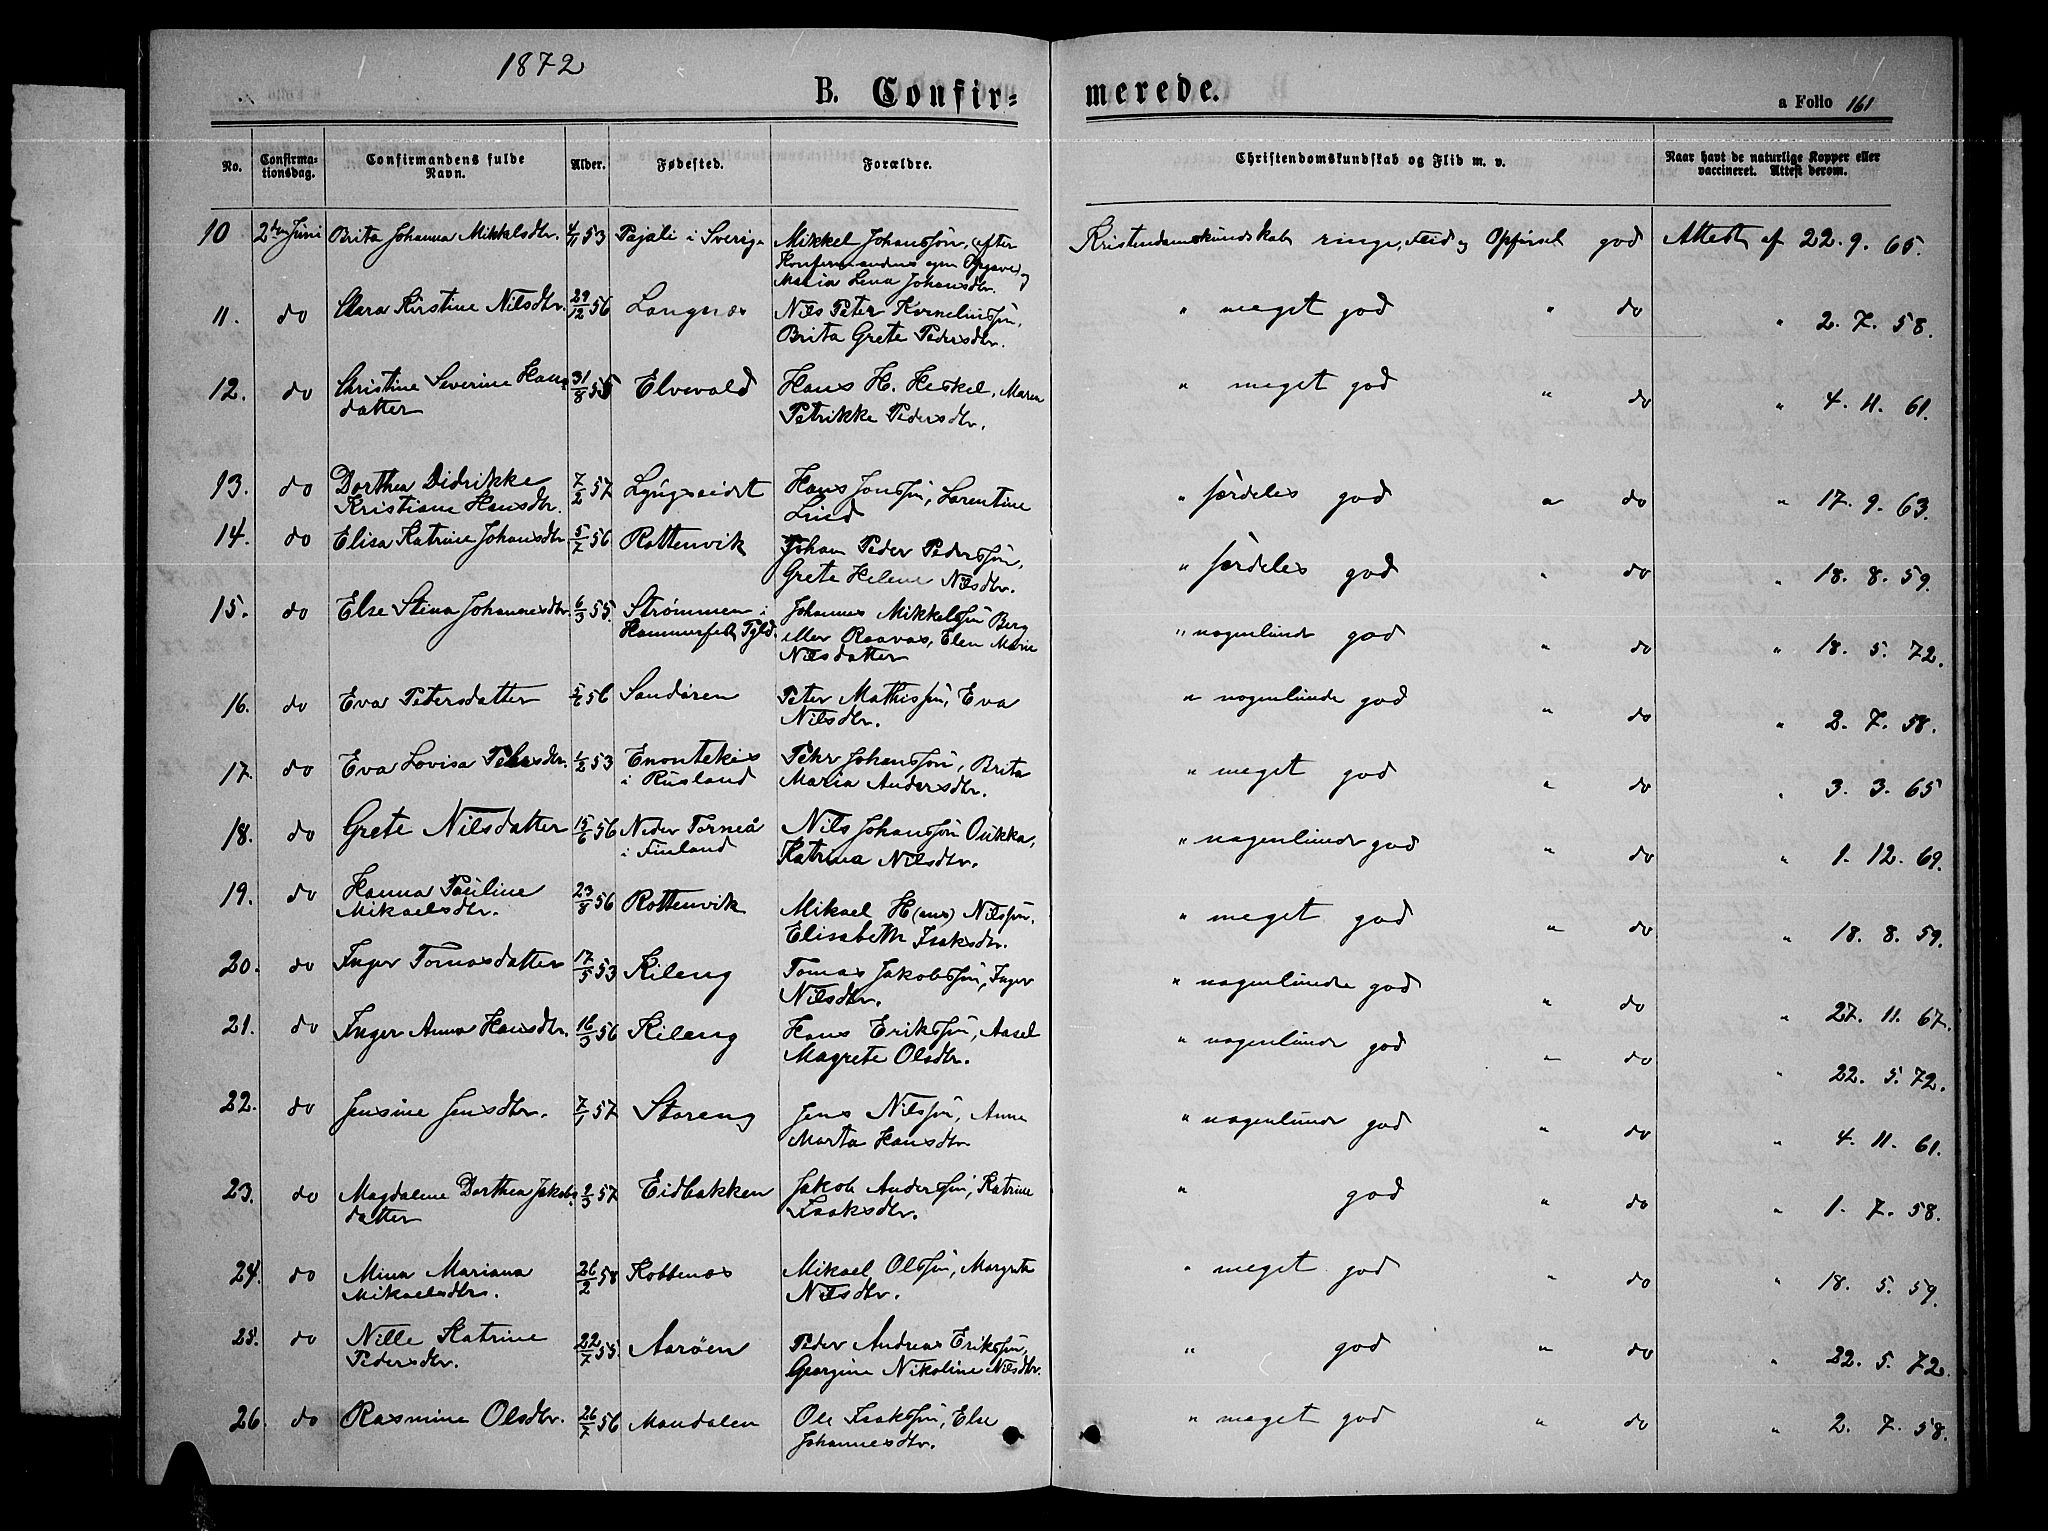 1872
B. Confir=
merede.
a Folio 161
No. Confirma-tionsdag. Confirmandens fulde Navn. Alder. Fødested. Forældre. Christendomskundskab og Flid m. v. Naar havt de naturlige Kopper eller vaccineret. Attest derom.
10 2den Juni Brita Johanna Mikkelsdtr. 4/11 53 Pajali i Sverig Mikkel Johanssøn, (efter Kristendomskundskab ringe, Flid og Opførsel god Attest af 22. 9. 65.
Konfirmandens egen Opgave) og
Maria Lena Johansdtr.
11. do Clara Kirstine Nilsdtr. 29/12 56 Langnæs Nils Peter Korneliussøn, " meget god " do " 2. 7. 58.
Brita Grete Pedersdtr.
12. do Christine Severine Hans 31/8 55 Elvevold Hans H. Heskel, Maren " meget god " do " 4. 11. 61.
datter Petrikke Pedersdtr.
13. do Dorthea Didrikke 7/2 57 Lyngseidet Hans Jonssøn, Larentine " særdeles god " do " 17. 9. 63.
Kristiane Hansdtr. Lind
14. do Elisa Katrine Johansdtr 5/7 56 Rottenvik Johan Peder Pederssøn, " særdeles god " do " 18. 8. 59.
Grete Helene Nilsdtr.
15. do Else Stina Johannesdtr. 6/3 55. Strømmen i Johannes Mikkelssøn Berg " nogenlunde god " do " 18. 5. 72.
Hammerfest Pgld. eller Raavas, Elen Marie
Nilsdatter
16. do Eva Petersdatter 5/6 56 Sandøren Peter Mathissøn, Eva " nogenlunde god " do " 2. 7. 58.
Nilsdtr.
17. do Eva Lovisa Pehrsdtr. 1/2 53 Enontekis Pehr Johanssøn, Brita " meget god " do " 3. 3. 65
i Rusland Maria Andersdtr.
18. do Grete Nilsdatter 15/6 56 Neder Torneå Nils Johanssøn Oukka, " nogenlunde god " do " 1. 12. 69.
i Finland Katrina Nilsdtr.
19. do Hanna Pauline 23/8 56 Rottenvik Mikael H(ans) Nilssøn, " meget god " do " 18. 8. 59.
Mikaelsdtr. Elisabeth Isaksdtr.
20. do Inger Tomasdatter 17/5 53 Kileng Tomas Jakobssøn, Inger " nogenlunde god " do " 27. 11. 67.
Nilsdtr.
21. do Inger Anna Hansdtr. 16/3 56 Kileng Hans Erikssøn, Aasel " nogenlunde god " do " 22. 5. 72.
Magrete Olsdtr.
22. do Jensine Jensdtr. 7/1 57 Storeng Jens Nilssøn, Anne " nogenlunde god " do " 4. 11. 61.
Marta Hansdtr
23. do Magdalene Dorthea Jakobs 2/3 57 Eidbakken Jakob Anderssøn, Katrine " god " do " 1. 7. 58.
datter Isaksdtr.
24. do Mina Mariana 26/2 58 Kobbenæs Mikael Olssøn, Margrete " meget god " do " 18. 5. 59.
Mikaelsdtr. Nilsdtr.
25. do Nille Katrine 22/7 55. Aarøen Peder Andreas Erikssøn, " god " do " 22. 5. 72.
Pedersdtr. Georgine Nikoline Nilsdtr.
26. do Rasmine Olsdtr. 26/7 56 Mandalen Ole Isakssøn, Else " meget god " do " 2. 7. 58.
Johannesdtr.